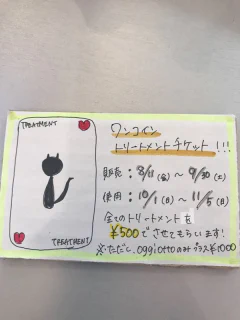 TREATMENT
ワンコイン
トリートメントチケット!!!
販売:8/11(金)~9/30(土)
使用:10/1(日)~11/5(日)
全てのトリートメントを
¥500でさせてもらいます!
※ただし、oggiottoのみプラス¥1000
TREATMENT